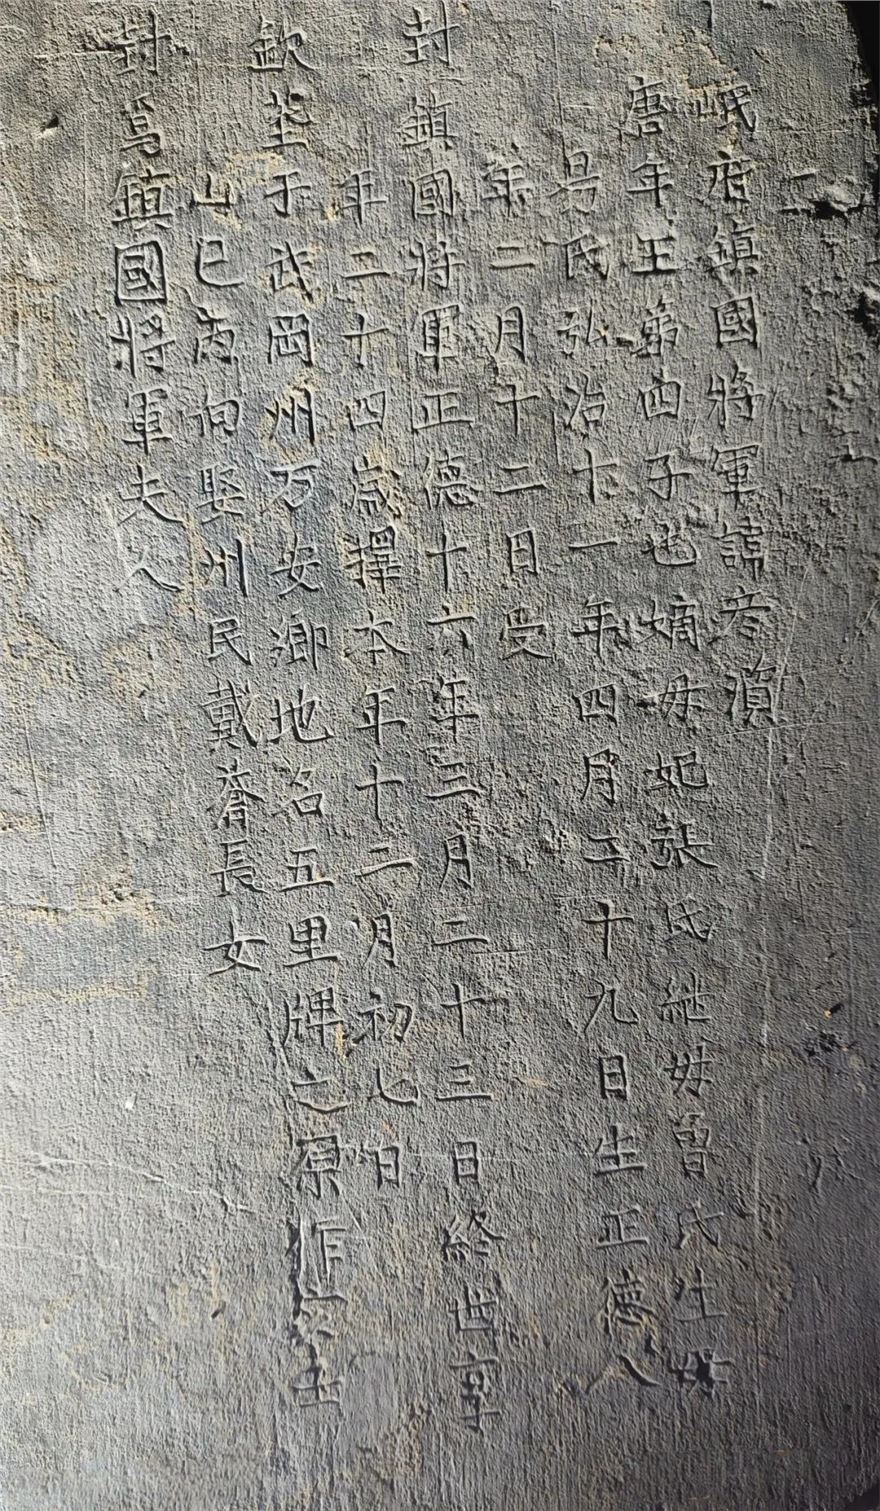 岷府鎮國將軍諱彦濵
唐年王第四子也嫡母妃張氏継母曾氏生母
易氏弘治十一年四月二十九日生正德八
年二月十二日受
封鎮國将軍正德十六年三月二十三日終世享
年二十四歳擇本年十二月初七日
欽塟于武岡州万安鄉地名五里牌之原作
山巳丙向娶州民戴 長女
封爲鎮國將軍夫人